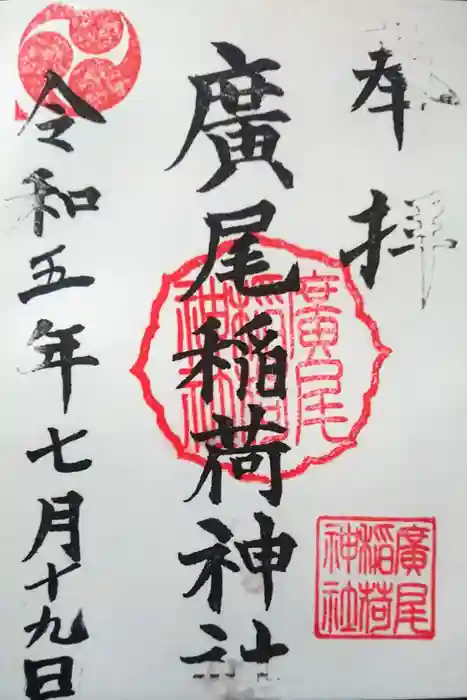 奉拝
廣尾稲荷神社
廣尾
稲荷
神社
廣尾
稲荷
神社
令和五年七月十九日